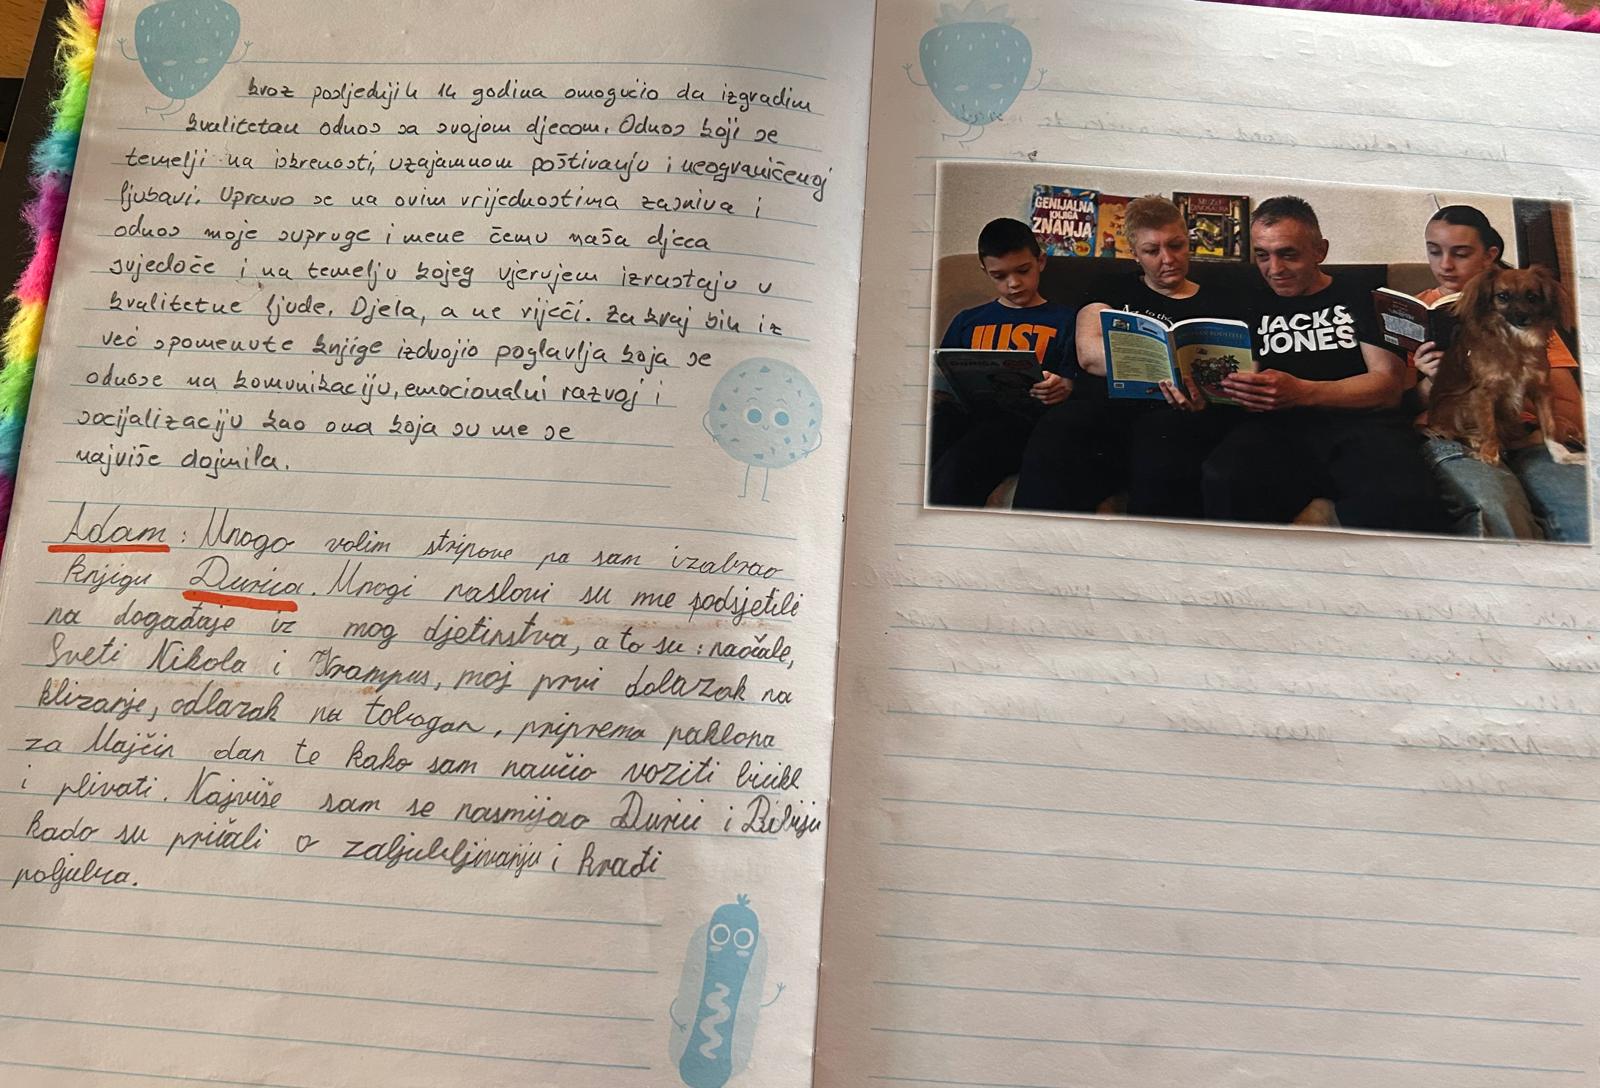 kroz posljednjih 14 godina omogućio da izgradim
kvalitetan odnos sa svojom djecom. Odnos koji se
temelji na iskrenosti, uzajamnom poštivanju i neograničenoj
ljubavi. Upravo se na ovim vrijednostima zasniva i
odnos moje supruge i mene čemu naša djeca
svjedoče i na temelju kojeg vjerujem izrastaju u
kvalitetne ljude. Djela, a ne riječi. Za kraj bih iz
već spomenute knjige izdvojio poglavlja koja se
odnose na komunikaciju, emocionalni razvoj i
socijalizaciju kao ona koja su me se
najviše dojmila.
Adam: Mnogo volim stripove pa sam izabrao
knjigu Durica. Mnogi naslovi su me podsjetili
na događaje iz mog djetinstva, a to su: naočale,
Sveti Nikola i Krampus, moj prvi dolazak na
klizanje, odlazak na tobogan, priprema poklona
za Majčin dan te kako sam naučio voziti bicikl
i plivati. Najviše sam se nasmijao Durici i Bibiju
kada su pričali o zaljubljivanju i krađi
poljubca.
GENIJALNA
KNJIGA
ZNANJA
JUST
JACK&
JONES